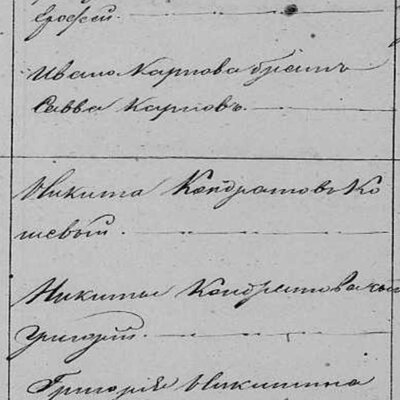 Ерофей
Ивана Карпова братъ
Савва Карповъ
Никита Кондратовъ Ко
шевый
Никиты Кондратова сынъ
Григорій
Григорія Никитина